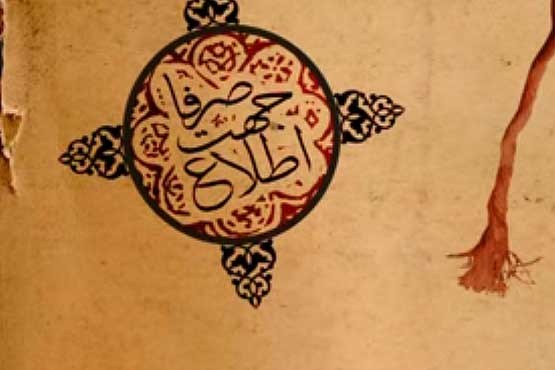 صرفا
جهت
اطلاع